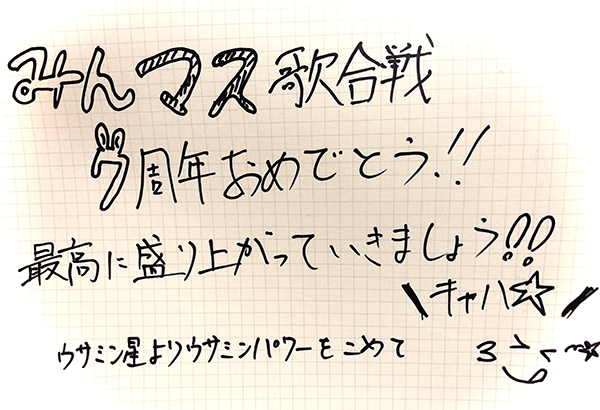 みんマス歌合戦
7周年おめでとう!!
最高に盛り上がっていきましょう!!
\キャハ☆/
ウサミン星よりウサミンパワーをこめて